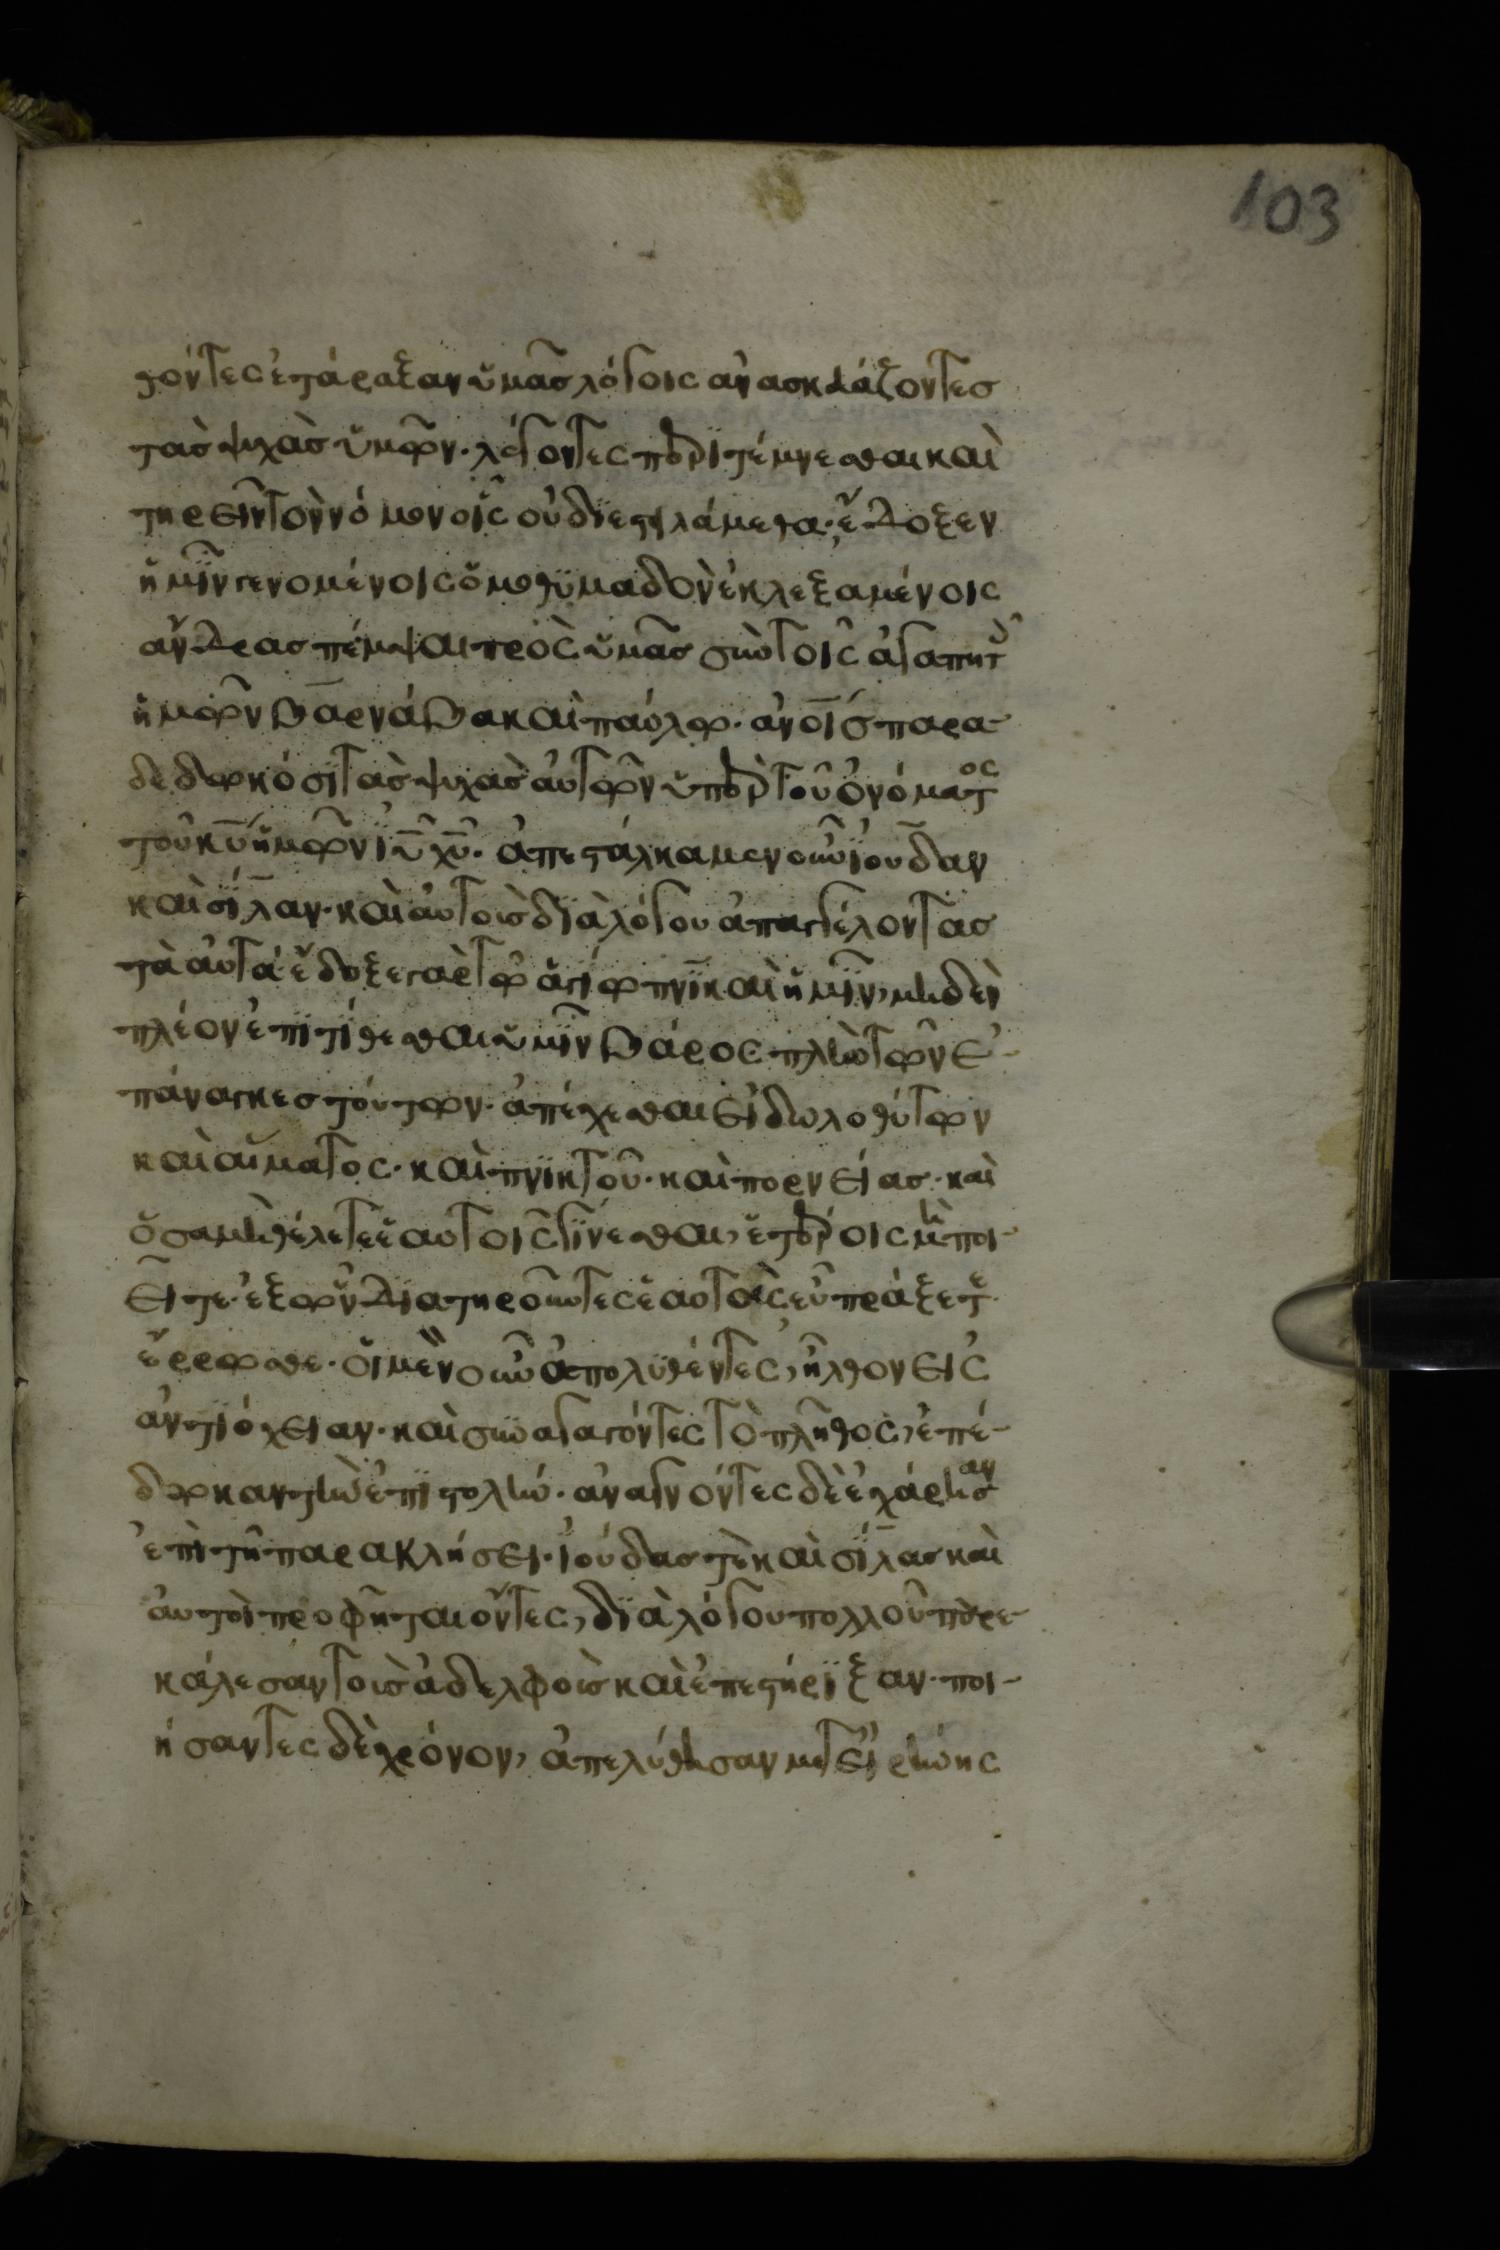 103
θόντες ἐτάραξαν ὑμᾶς λόγοις ἀνασκευάζοντες
τὰς ψυχὰς ὑμῶν· λέγοντες περιτέμνεσθαι καὶ
τηρεῖν τὸν νόμον οἷς οὐ διεστειλάμεθα· ἔδοξεν
ἡμῖν γενομένοις ὁμοθυμαδὸν ἐκλεξαμένοις
ἄνδρας πέμψαι πρὸς ὑμᾶς σὺν τοῖς ἀγαπητ
ἡμῶν βαρνάβα καὶ παύλω· ἀνοις παρα-
δεδωκόσι τὰς ψυχὰς αὐτῶν ὑπὲρ τοῦ ὀνόματος
τοῦ κυ ἡμῶν ιυ χυ· ἀπεστάλκαμεν οὖν ἰούδαν
καὶ σίλαν· καὶ αὐτοὺς διὰ λόγου ἀπαγγέλοντας
τὰ αὐτά· ἔδοξε γὰρ τῶ ἁγίω πνι καὶ ἡμῖν, μηδὲν
πλέον ἐπιτίθεσθαι ὑμῖν βάρος πλὴν τῶν ἐ-
πάναγκες τούτων· ἀπέχεσθαι εἰδωλοθύτων
καὶ αἵματος· καὶ πνικτοῦ· καὶ πορνείας· καὶ
ὅσα μὴ θέλετε ἑαυτοῖς γίνεσθαι, ἑτέροις μὴ ποι-
εῖτε· ἐξ ὧν διατηροῦντες ἑαυτοὺς εὖ πράξετ
ἔρρωσθε· οἱ μὲν οὖν ἀπολυθέντες, ἦλθον εἰς
ἀντιόχειαν· καὶ συναγαγόντες τὸ πλῆθος, ἐπέ-
δωκαν τὴν ἐπιστολήν· ἀναγνόντες δὲ ἐχάρησαν
ἐπὶ τῆ παρακλήσει· ἰούδας τὲ καὶ σίλας καὶ
αὐτοὶ προφῆται ὄντες, διὰ λόγου πολλοῦ παρε-
κάλεσαν τοὺς ἀδελφοὺς καὶ ἐπεστήριξαν· ποι-
ήσαντες δὲ χρόνον, ἀπελύθησαν μετ εἰρήνης